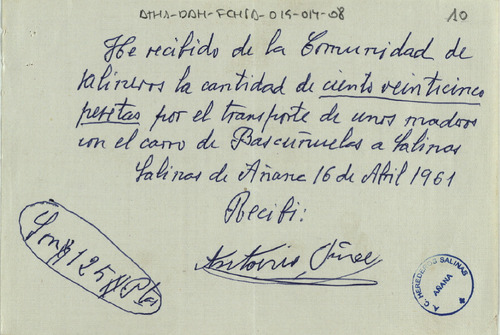 ATHA-DAH-FCHSA-019-014-08
10
He recibido de la Comunidad de
salineros la cantidad de ciento veinticinco
pesetas por el transporte de unos maderos
con el carro de Bascuñuelas a Salinas
Salinas de Añana 16 de Abril 1961
Recibi:
Antonio
Son 125 Pts
A. C. HEREDEROS SALINAS
AÑANA